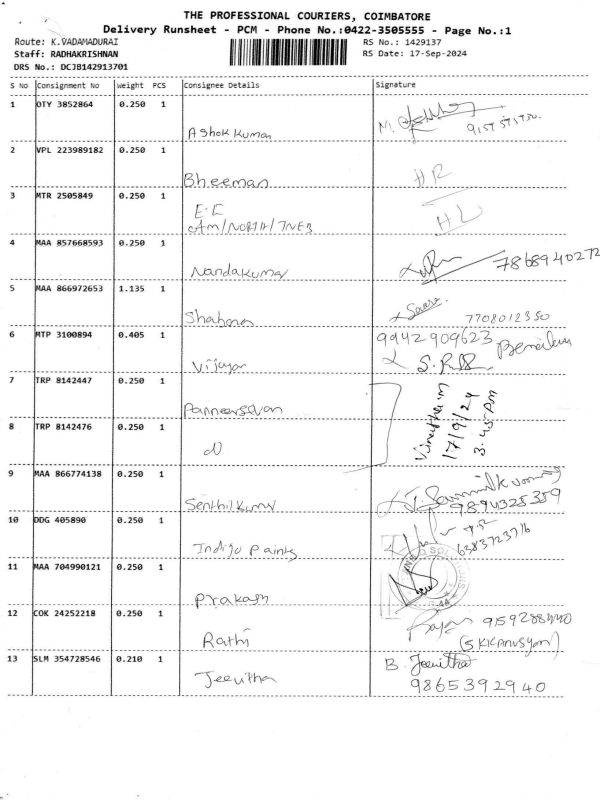 THE PROFESSIONAL COURIERS, COIMBATORE
Delivery Runsheet - PCM - Phone No.:0422-3505555 - Page No.:1
Route: K.VADAMADURAI
RS No.: 1429137
Staff: RADHAKRISHNAN
RS Date: 17-Sep-2024
DRS No.: DCJB142913701
S No Consignment No Weight PCS Consignee Details Signature
1 OTY 3852864 0.250 1
Ashok Kumar
2 VPL 223989182 0.250 1
Bheeman HR
3 MTR 2505849 0.250 1
E.E HL
4 MAA 857668593 0.250 1
Nandakumar 7868940272
5 MAA 866972653 1.135 1
Shahana 7708012350
6 MTP 3100894 0.405 1 9942909623
Vijayar
7 TRP 8142447 0.250 1
Panneerselvan 17/9/24 3.45 PM
8 TRP 8142476 0.250 1
9 MAA 866774138 0.250 1
Senthilkumar 9894325359
10 DDG 405890 0.250 1
Indigo Paints 6383723716
11 MAA 704990121 0.250 1
Prakash
12 COK 24252218 0.250 1
Rathi
13 SLM 354728546 0.210 1
Jeevitha B. Jeevitha
9865392940